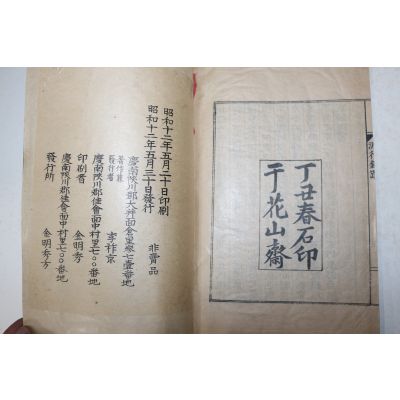 丁丑春石印
于花山齋
昭和十二年五月二十日印刷
昭和十二年五月三十日發行
非賣品
慶南陜川郡大幷面倉里
著作兼
發行者
慶南陜川郡佳會面中村里七〇〇番地
印刷者 金明秀
慶南陜川郡佳會面中村里七〇〇番地
發行所 金明秀方